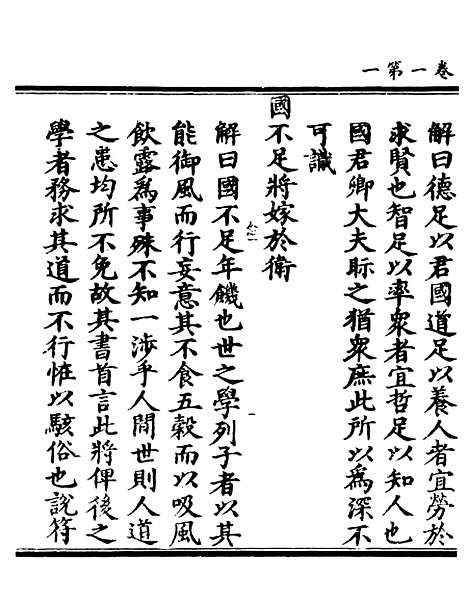 卷一第一
解曰德足以君國道足以養人者宜勞於
求賢也智足以率衆者宜哲足以知人也
國君卿大夫眎之猶衆庶此所以爲深不
可識
國不足將嫁於衛
解曰國不足年饑也世之學列子者以其
能御風而行妄意其不食五穀而以吸風
飲露爲事殊不知一涉乎人間世則人道
之患均所不免故其書首言此將俾後之
學者務求其道而不行怪以駭俗也說符